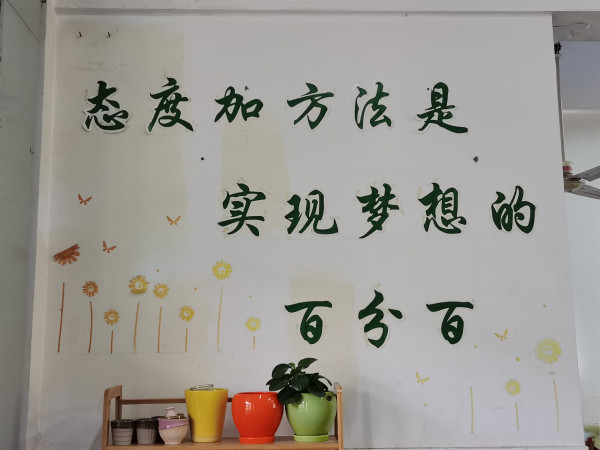 态度加方法是
实现梦想的
百分百